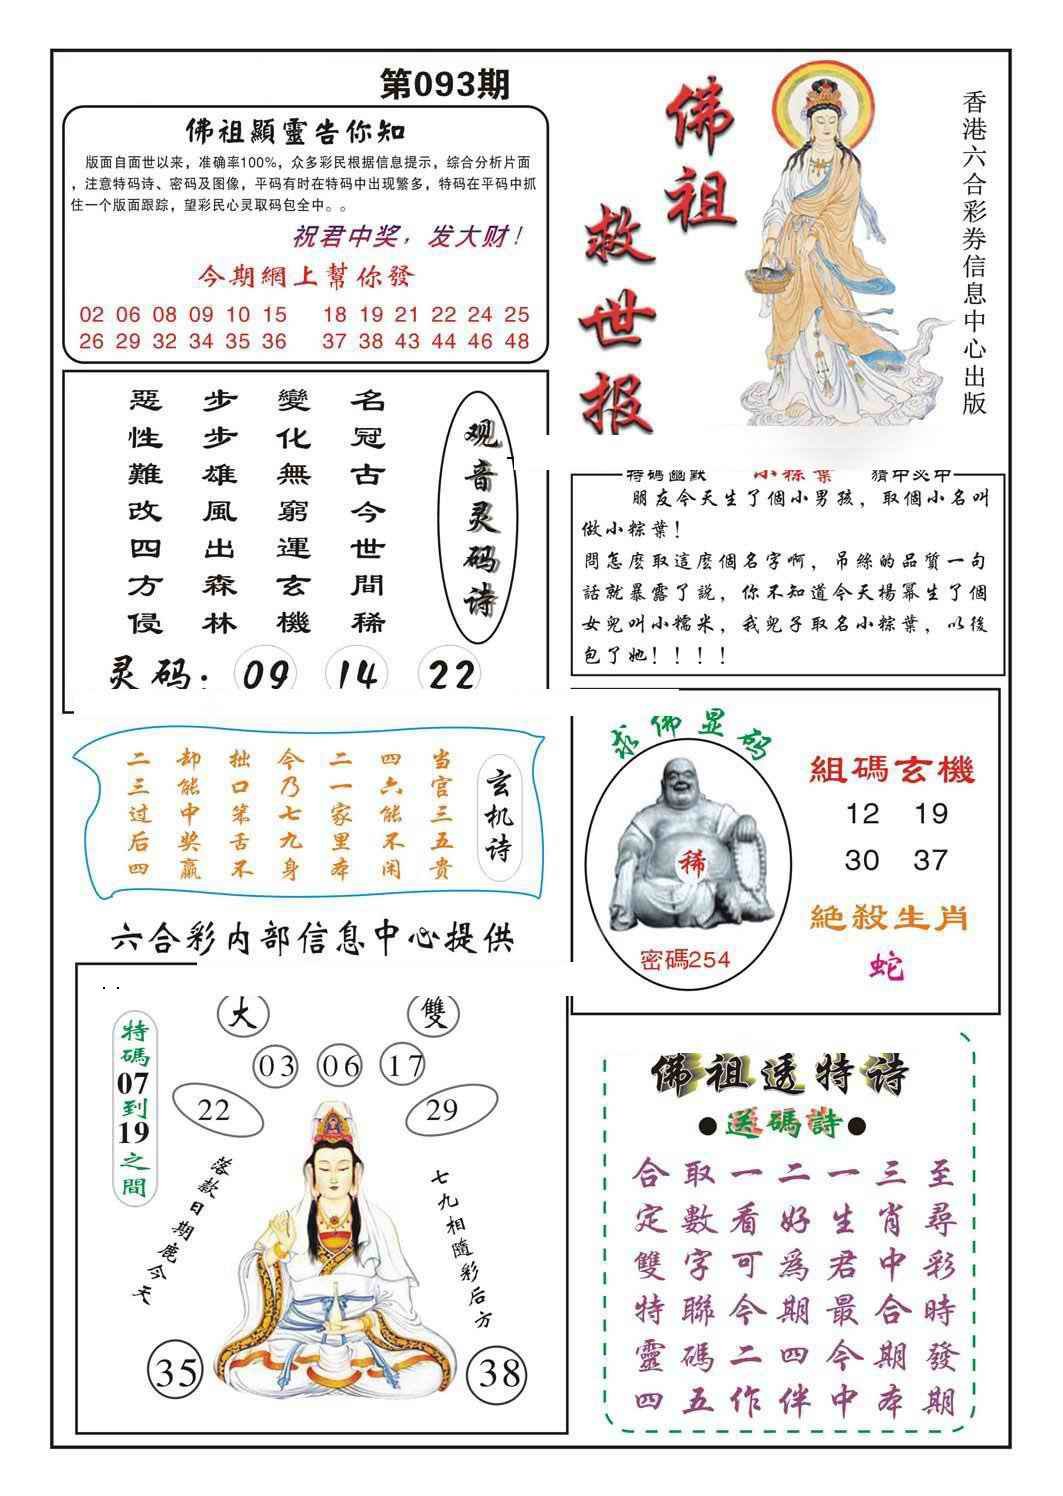 第093期
佛祖顯靈告你知
版面自面世以来，准确率100%，众多彩民根据信息提示，综合分析片面
，注意特码诗、密码及图像，平码有时在特码中出现繁多，特码在平码中抓
住一个版面跟踪，望彩民心灵取码包全中。。
祝君中奖，发大财！
今期網上幫你發
02 06 08 09 10 15 18 19 21 22 24 25
26 29 32 34 35 36 37 38 43 44 46 48
佛祖救世报
香港六合彩券信息中心出版
观音灵码诗
名冠古今世間稀
變化無窮運玄機
步步雄風出森林
惡性難改四方侵
灵码：09 14 22
特碼幽默 小粽葉 猜中必中
朋友今天生了個小男孩，取個小名叫
做小粽葉！
問怎麽取這麽個名字啊，吊絲的品質一句
話就暴露了説，你不知道今天楊冪生了個
女兒叫小糯米，我兒子取名小粽葉，以後
包了她！！！！
玄机诗
当官三五贵
四六能不闲
二一家里本
今乃七九身
拙口笨舌不
却能中奖赢
二三过后四
求佛显码
稀
密碼254
組碼玄機
12 19
30 37
絕殺生肖
蛇
六合彩内部信息中心提供
特碼07到19之間
大 雙
03 06 17
22 29
落款日期鹿今天
七九相隨彩后方
35 38
佛祖透特诗
●送碼詩●
合取一二一三至
定數看好生肖尋
雙字可為君中彩
特聯今期最合時
靈碼二四今期發
四五作伴中本期